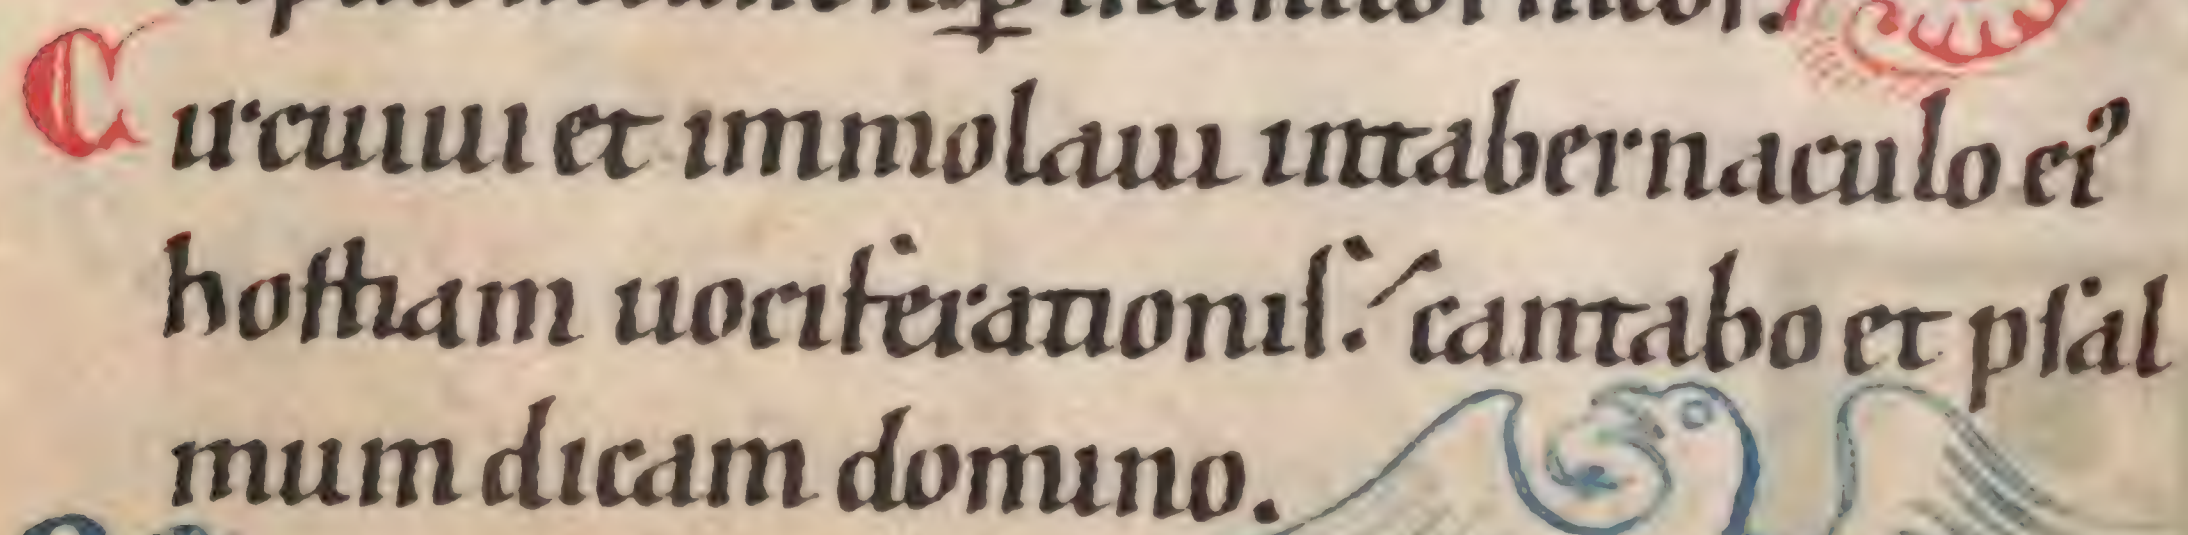 Circuiui et immolaui intabernaculo eiꝰ
hoſtiam uociferationiſ.᾽ cantabo et pſal
mum dicam domino.